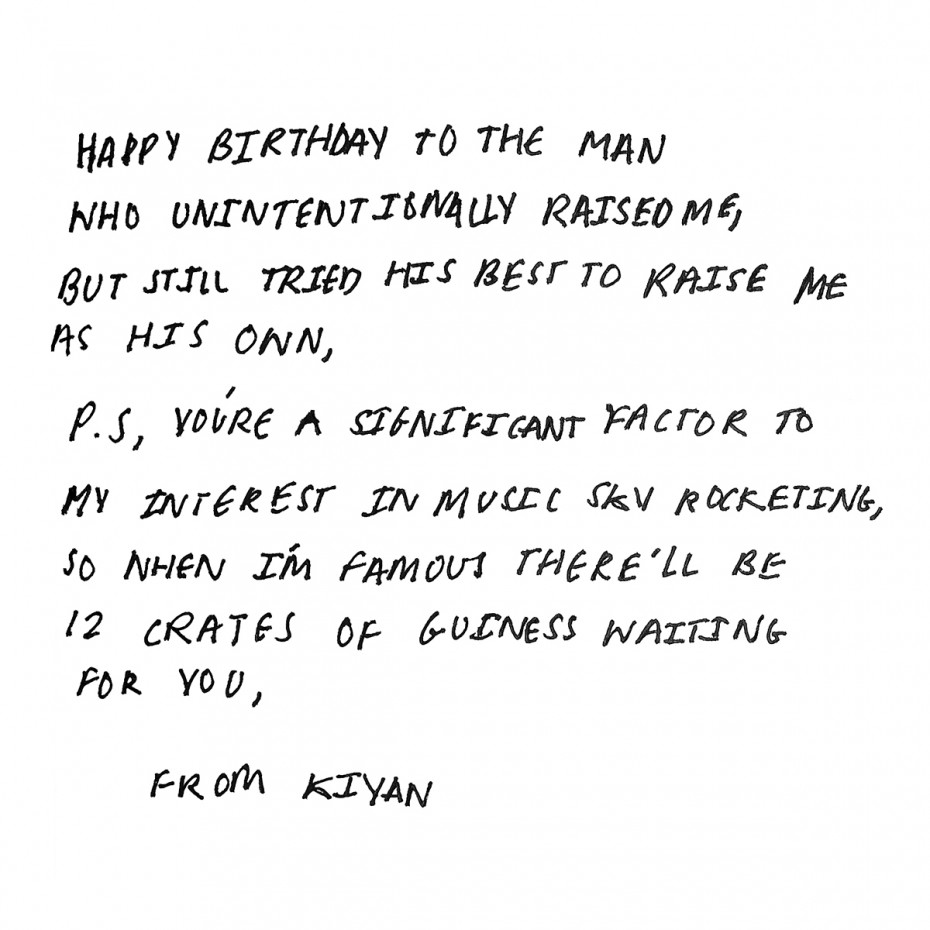 HAPPY BIRTHDAY TO THE MAN
WHO UNINTENTIONALLY RAISED ME,
BUT STILL TRIED HIS BEST TO RAISE ME
AS HIS OWN,
P.S, YOU'RE A SIGNIFICANT FACTOR TO
MY INTEREST IN MUSIC SKY ROCKETING,
SO WHEN I'M FAMOUS THERE'LL BE
12 CRATES OF GUINESS WAITING
FOR YOU,
FROM KIYAN